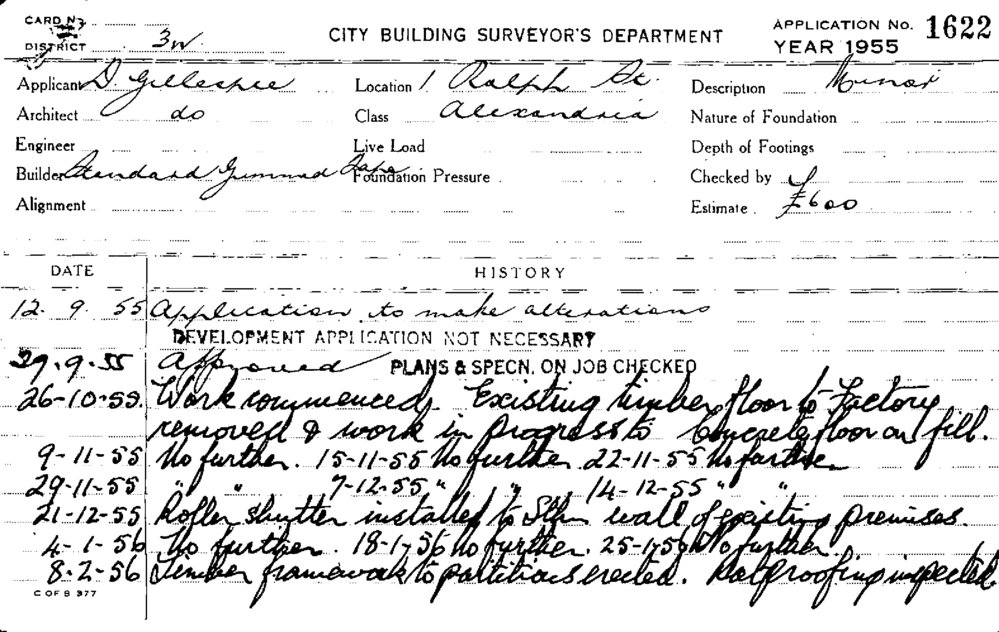 CARD No.
DISTRICT 3W.
CITY BUILDING SURVEYOR'S DEPARTMENT
APPLICATION No. 1622
YEAR 1955
Applicant D Gillespie Location 1 Ralph St. Description Minor
Architect do Class Alexandria Nature of Foundation
Engineer Live Load Depth of Footings
Builder Standard Gummed Tape Foundation Pressure Checked by
Alignment Estimate £600
DATE HISTORY
12. 9. 55 Application to make alterations
DEVELOPMENT APPLICATION NOT NECESSARY
29.9.55 Approved PLANS & SPECN. ON JOB CHECKED
26-10-55. Work commenced. Existing timber floor to Factory
removed & work in progress to Concrete floor on fill.
9-11-55 No further. 15-11-55 No further. 22-11-55 No further
29-11-55 " " 7-12-55 " " 14-12-55 " "
21-12-55 Roller shutter installed to Sthn wall of existing premises.
4-1-56 No further. 18-1-56 no further. 25-1-56 No further.
8-2-56 Timber framework to partitions erected. Ratproofing inspected.
C OF S 377